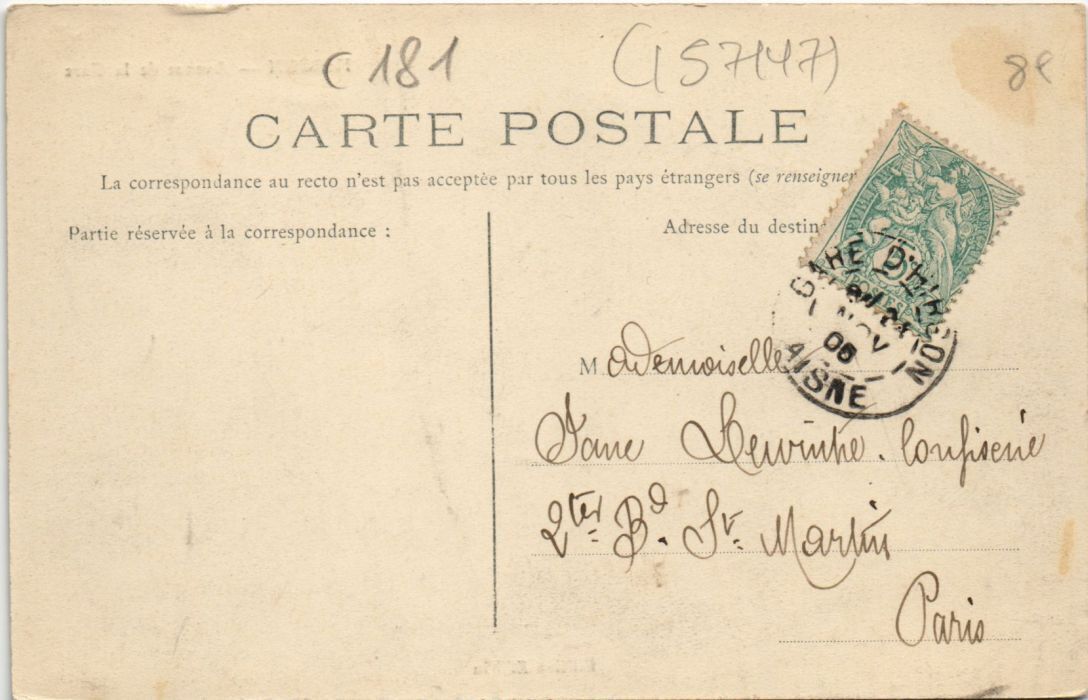 C 181 (157147) 8€
CARTE POSTALE
La correspondance au recto n'est pas acceptée par tous les pays étrangers (se renseigner
Partie réservée à la correspondance :
Adresse du destin
POSTES
GARE D'HIRSON
NOV
06
AISNE
Mademoiselle
Jane Lewinke. Confiserie
2ter Bd. St. Martin
Paris